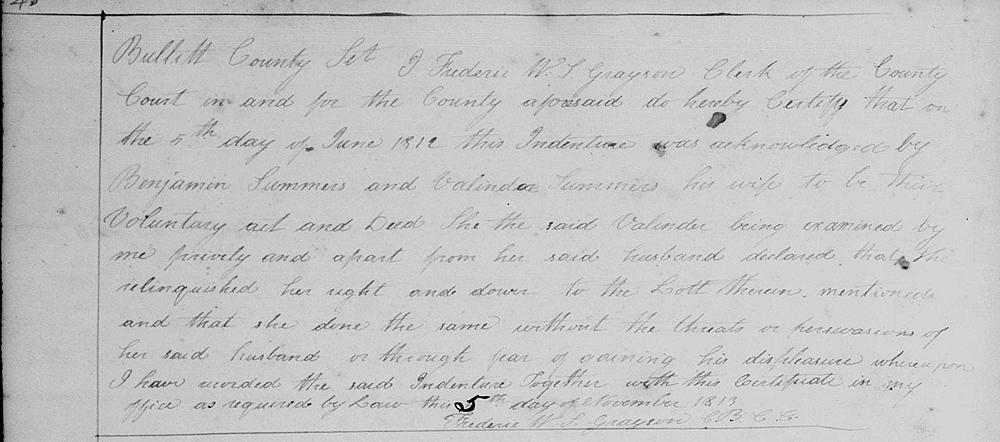 Bullitt County Sct I Frederic W. S. Grayson Clerk of the County
Court in and for the County aforesaid do hereby Certify that on
the 5th day of June 1812 this Indenture was acknowledged by
Benjamin Summers and Valinder Summers his wife to be their
Voluntary act and Deed She the said Valinder being examined by
me privily and apart from her said husband declared that She
relinquished her right and dower to the Lott therein mentioned
and that she done the same without the threats or perswasions of
her said husband or through fear of gaining his displeasure whereupon
I have recorded the said Indenture Together with this Certificate in my
office as required by Law this 5th day of November 1813
Frederic W. S. Grayson C B C C